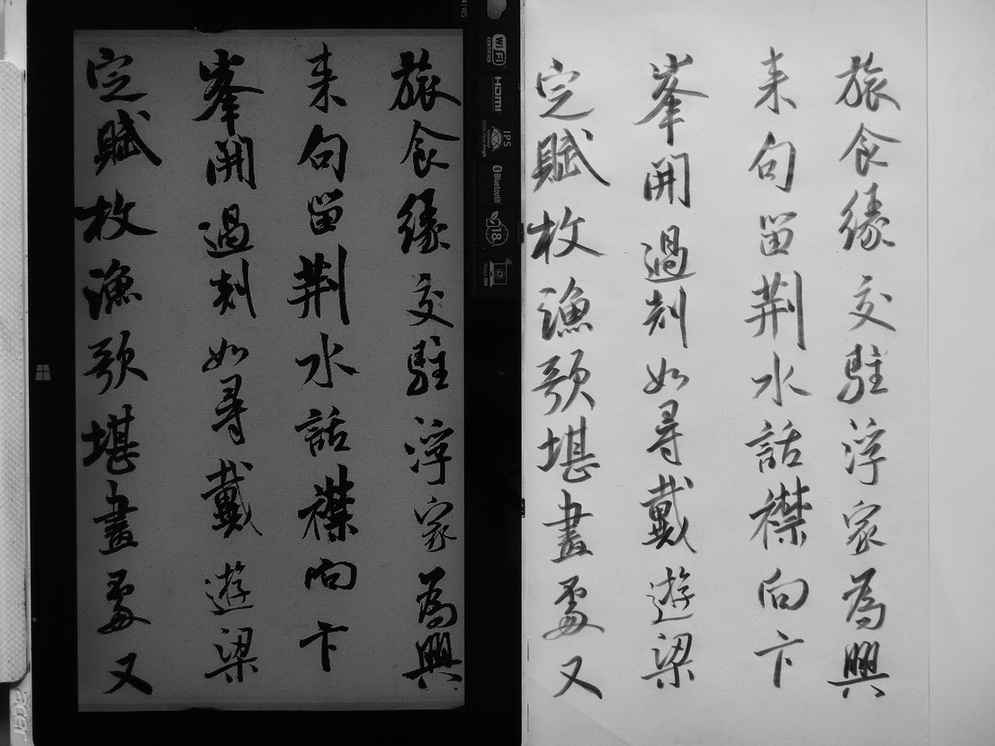 旅食緣交駐浮家為興
来句留荆水話襟向卞
峯開過剡如尋戴遊梁
定賦枚漁歌堪畫處又
WiFi
CERTIFIED
HDMI
IPS
Bluetooth
18
acer
旅食緣交駐浮家為興
来句留荆水話襟向卞
峯開過剡如尋戴遊梁
定賦枚漁歌堪畫處又